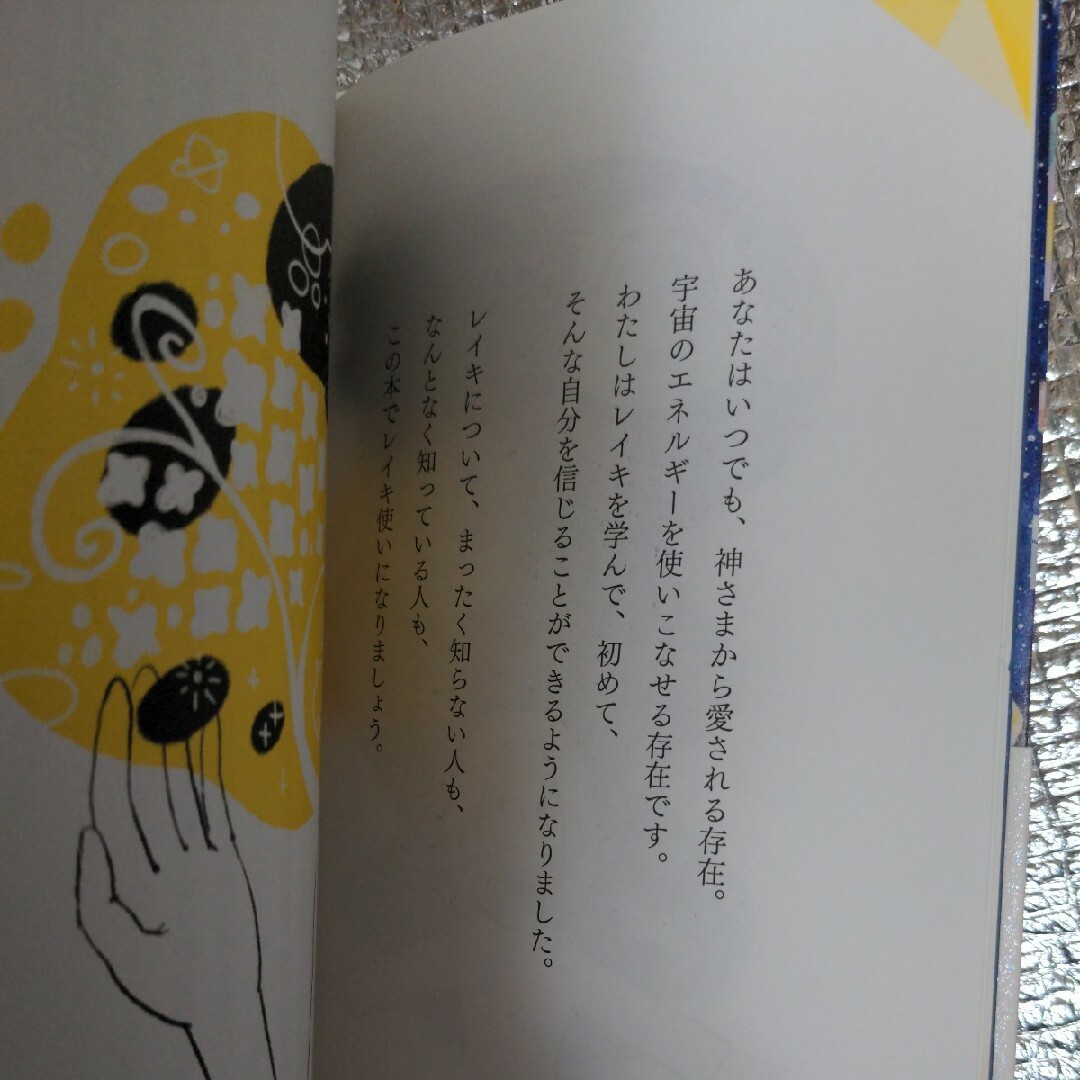 あなたはいつでも、神さまから愛される存在。
宇宙のエネルギーを使いこなせる存在です。
わたしはレイキを学んで、初めて、
そんな自分を信じることができるようになりました。
レイキについて、まったく知らない人も、
なんとなく知っている人も、
この本でレイキ使いになりましょう。